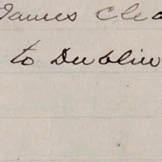 James Clea
to Dublin